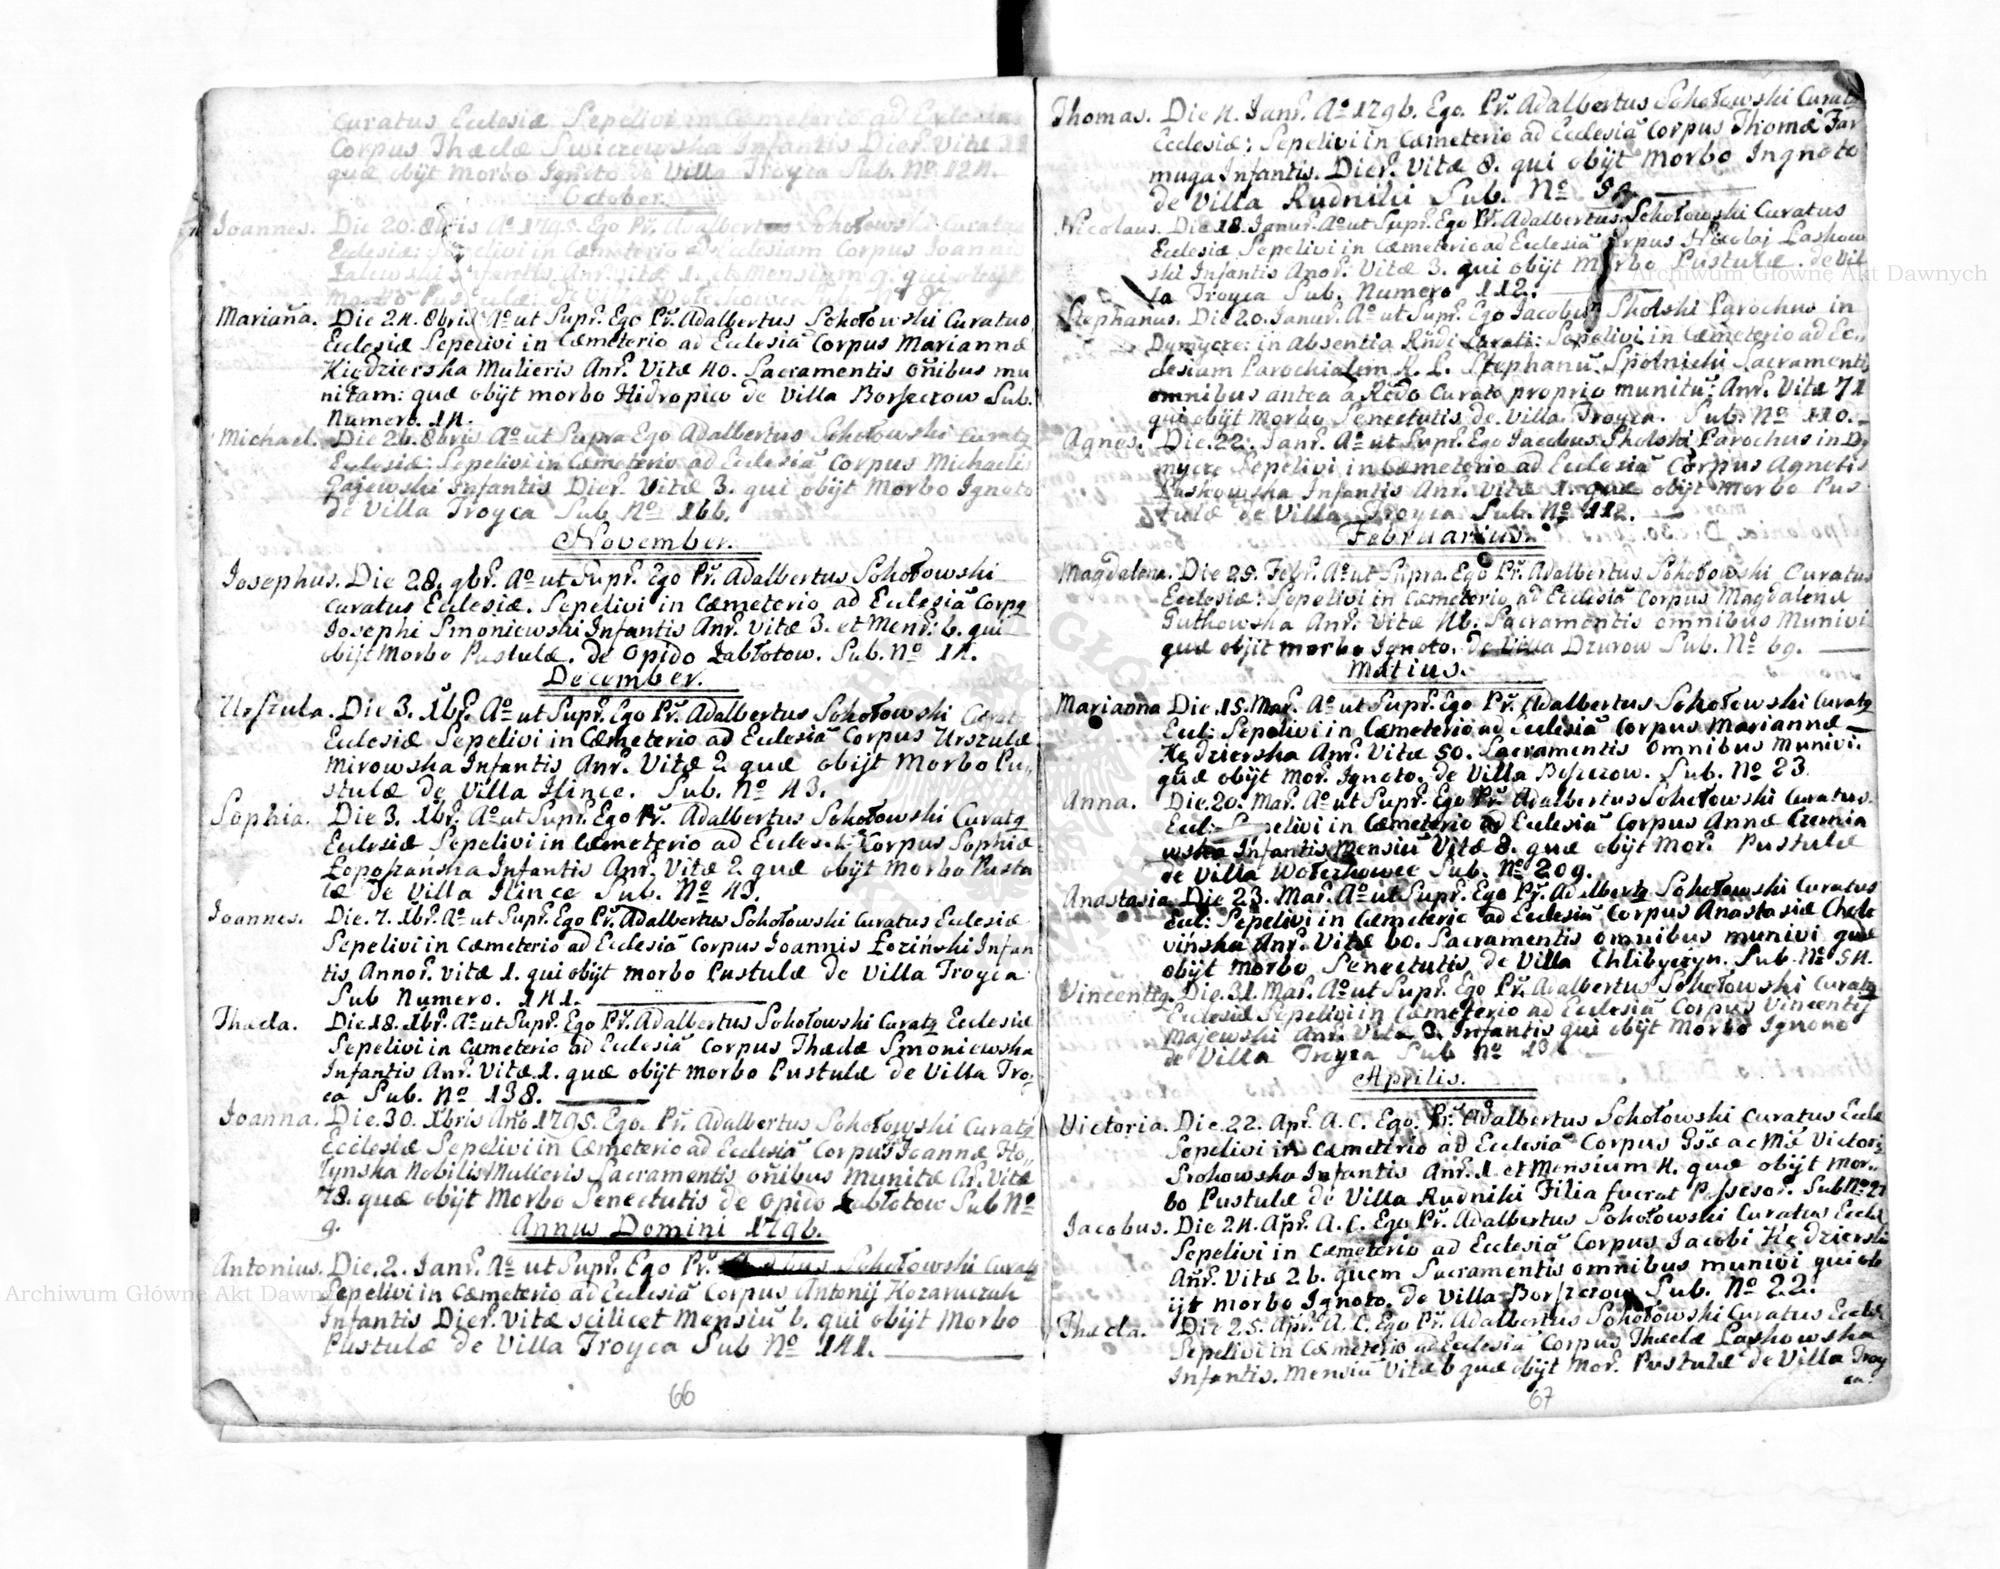 Curatus Ecclesiæ Sepelivi in Cæmeterio ad Ecclesiam
Corpus Thæclæ Infantis Dier. Vitæ
quæ obijt Morbo Ignoto de Villa Troyca Sub. No 124.
October.
Joannes. Die 20. 8bris Ao 1795. Ego Pr. Adalbertus Sokołowski Curatq
Ecclesiæ: Sepelivi in Cæmeterio ad Ecclesiam Corpus Joannis
Infantis Anr. Vitæ 1. et Mensium 9. qui obijt
Morbo Pustulæ: de Villa Sub.
Marian̄a. Die 24. 8bris Ao ut Supr. Ego Pr. Adalbertus Sokołowski Curatus
Ecclesiæ Sepelivi in Cæmeterio ad Ecclesiā Corpus Mariannæ
Kiędzierska Mulieris Anr. Vitæ 40. Sacramentis on̄ibus mu
nitam: quæ obijt morbo Hidropico de Villa Borszczow Sub.
Numero. 14.
Michael. Die 26. 8bris Ao ut Supra Ego Adalbertus Sokołowski Curatq
Ecclesiæ: Sepelivi in Cæmeterio ad Ecclesiā Corpus Michaelis
Gajewski Infantis Dier. Vitæ 3. qui obijt Morbo Ignoto
de Villa Troyca Sub No 166.
November.
Josephus. Die 28. 9br. Ao ut Supr. Ego Pr. Adalbertus Sokołowski
Curatus Ecclesiæ. Sepelivi in Cæmeterio ad Ecclesiā Corpq
Josephi Smoniewski Infantis Anr. Vitæ 3. et Menr: 6. qui
obijt Morbo Pustulæ. de Opido Zabłotow. Sub. No 14.
December.
Urszula. Die 3. 1br. Ao ut Supr. Ego Pr. Adalbertus Sokołowski Curat
Ecclesiæ Sepelivi in Cæmeterio ad Ecclesiā Corpus Urszulæ
Mirowska Infantis Anr. Vitæ 2 quæ obijt Morbo Pu„
stulæ de Villa Ilince. Sub. No 43.
Sophia. Die 3. 1br. Ao ut Supr. Ego Pr. Adalbertus Sokołowski Curatq
Ecclesiæ Sepelivi in Cæmeterio ad Eccles. Corpus Sophiæ
Łoposzańska Infantis Anr. Vitæ 2 quæ obijt Morbo Pustu
læ de Villa Ilince Sub. No 43.
Joannes. Die. 7. 1br. Ao ut Supr. Ego Pr. Adalbertus Sokołowski Curatus Ecclesiæ
Sepelivi in Cæmeterio ad Ecclesiā Corpus Joannis Łoziński Infan
tis Annor. Vitæ 1. qui obijt morbo Pustulæ de Villa Troyca
Sub Numero. 141.
Thæcla. Die 18. 1br. Ao ut Supr. Ego Pr. Adalbertus Sokołowski Curatq Ecclesiæ
Sepelivi in Cæmeterio ad Ecclesiā Corpus Thæclæ Smoniewska
Infantis Anr. Vitæ 1. quæ obijt morbo Pustulæ de Villa Troy„
ca Sub. No 138.
Joanna. Die. 30. 1bris An̄o 1795. Ego. Pr. Adalbertus Sokołowski Curatq
Ecclesiæ Sepelivi in Cæmeterio ad Ecclesiā Corpus Joannæ Ho„
łynska Nobilis Mulieris Sacramentis on̄ibus Munitæ Ar. Vitæ
78. quæ obijt Morbo Senectutis de Opido Zabłotow Sub No
9.
Annus Domini 1796.
Antonius. Die. 2. Janr. Ao ut Supr. Ego Pr. Sokołowski Curatq
Sepelivi in Cæmeterio ad Ecclesiā Corpus Antonij Kozanczuk
Infantis Dier. Vitæ scilicet Mensiū 6. qui obijt Morbo
Pustulæ de Villa Troyca Sub No 141.
66
Thomas. Die 4. Janr. Ao 1796. Ego. Pr. Adalbertus Sokołowski Curatq
Ecclesiæ; Sepelivi in Cæmeterio ad Ecclesiā Corpus Thomæ Jar
muga Infantis. Dier. Vitæ 8. qui obijt Morbo Ingnoto
de Villa Rudniki Sub. No
Nicolaus. Die 18. Janur. Ao ut Supr. Ego Pr. Adalbertus Sokołowski Curatus
Ecclesiæ Sepelivi in Cæmeterio ad Ecclesiā Corpus Nicolaj Laskow
ski Infantis Anor. Vitæ 3. qui obijt Morbo Pustulæ. de Vil
la Troyca Sub. Numero 112.
Stephanus. Die 20. Janur. Ao ut Supr. Ego Jacobus Skolski Parochus in
Dymycze: in Absentia Rn̄di Curati: Sepelivi in Cæmeterio ad Ec„
clesiam Parochialem R. L. Stephanū Spolnicki Sacramentis
omnibus antea a Rēdo Curato proprio munitū: Anr. Vitæ 71
qui obijt Morbo Senectutis de Villa Troyca. Sub. No 110.
Agnes. Die. 22. Janr. Ao ut Supr. Ego Jacobus Skolski Parochus in Dy
mycze Sepelivi in Cæmeterio ad Ecclesiā Corpus Agnetis
Laskowska Infantis Anr. Vitæ 1. quæ obijt Morbo Pus
tulæ de Villa Troyca Sub. No 112.
Februarius.
Magdalena. Die 25. Febr. Ao ut Supra. Ego Pr. Adalbertus Sokołowski Curatus
Ecclesiæ: Sepelivi in Cæmeterio ad Ecclesiā Corpus Magdalenæ
Gutkowska Anr. Vitæ 46. Sacramentis omnibus Munivi
quæ objit morbo Ignoto. de Villa Dzurow Sub. No 69.
Matius.
Marianna Die. 15. Mar. Ao ut Supr. Ego Pr. Adalbertus Sokołowski Curatq
Eccl: Sepelivi in Cæmeterio ad Ecclesiā Corpus Mariannæ
Kędzierska Anr. Vitæ 50. Sacramentis Omnibus Munivi.
quæ obijt Mor. Ignoto. de Villa Boszczow. Sub. No 23.
Anna. Die. 20. Mar. Ao ut Supr. Ego Pr. Adalbertus Sokołowski Curatus.
Eccl: Sepelivi in Cæmeterio ad Ecclesiā Corpus Annæ Czernia
wska Infantis Mensiū Vitæ 8. quæ obijt Mor. Pustulæ
de Villa Wołczkowce Sub. No 209.
Anastasia Die. 23. Mar. Ao ut Supr. Ego Pr. Adalbertq Sokołowski Curatus
Eccl: Sepelivi in Cæmeterio ad Ecclesiā Corpus Anastasiæ Chole
vińska Anr. Vitæ 60. Sacramentis omnibus munivi quæ
obijt Morbo Senectutis de Villa Chlibyczyn. Sub. No 54.
Vincentiq. Die. 31. Mar. Ao ut Supr. Ego Pr. Adalbertus Sokołowski Curatq
Ecclesiæ Sepelivi in Cæmeterio ad Ecclesiā Corpus Vincentij
Majewski Anr. Vitæ 3. Infantis qui obijt Morbo Ignono
de Villa Troyca Sub No
Aprilis.
Victoria. Die. 22. Apr. A. C. Ego. Pr. Adalbertus Sokołowski Curatus Eccle
Sepelivi in Cæmeterio ad Ecclesiā Corpus Gsæ ac Mæ Victori„
Srokowska Infantis Anr. 1. et Mensium 4. quæ obijt Mor„
bo Pustulæ de Villa Rudniki Filia fuerat Possesor. Sub No 27
Jacobus. Die 24. Apr. A. C. Ego Pr. Adalbertus Sokołowski Curatus Eccle
Sepelivi in Cæmeterio ad Ecclesiā Corpus Jacobi Kędzierski
Anr. Vitæ 26. quem Sacramentis omnibus munivi qui ob
ijt morbo Ignoto. de Villa Borszczow Sub. No 22.
Thæcla. Die 25. Apr. A. C. Ego Pr. Adalbertus Sokołowski Curatus Eccle
Sepelivi in Cæmeterio ad Ecclesiā Corpus Thæclæ Laskowska
Infantis. Mensiū Vitæ 6 quæ obijt Mor. Pustulæ de Villa Troy
ca.
67
Archiwum Główne Akt Dawnych
Archiwum Główne Akt Dawnych